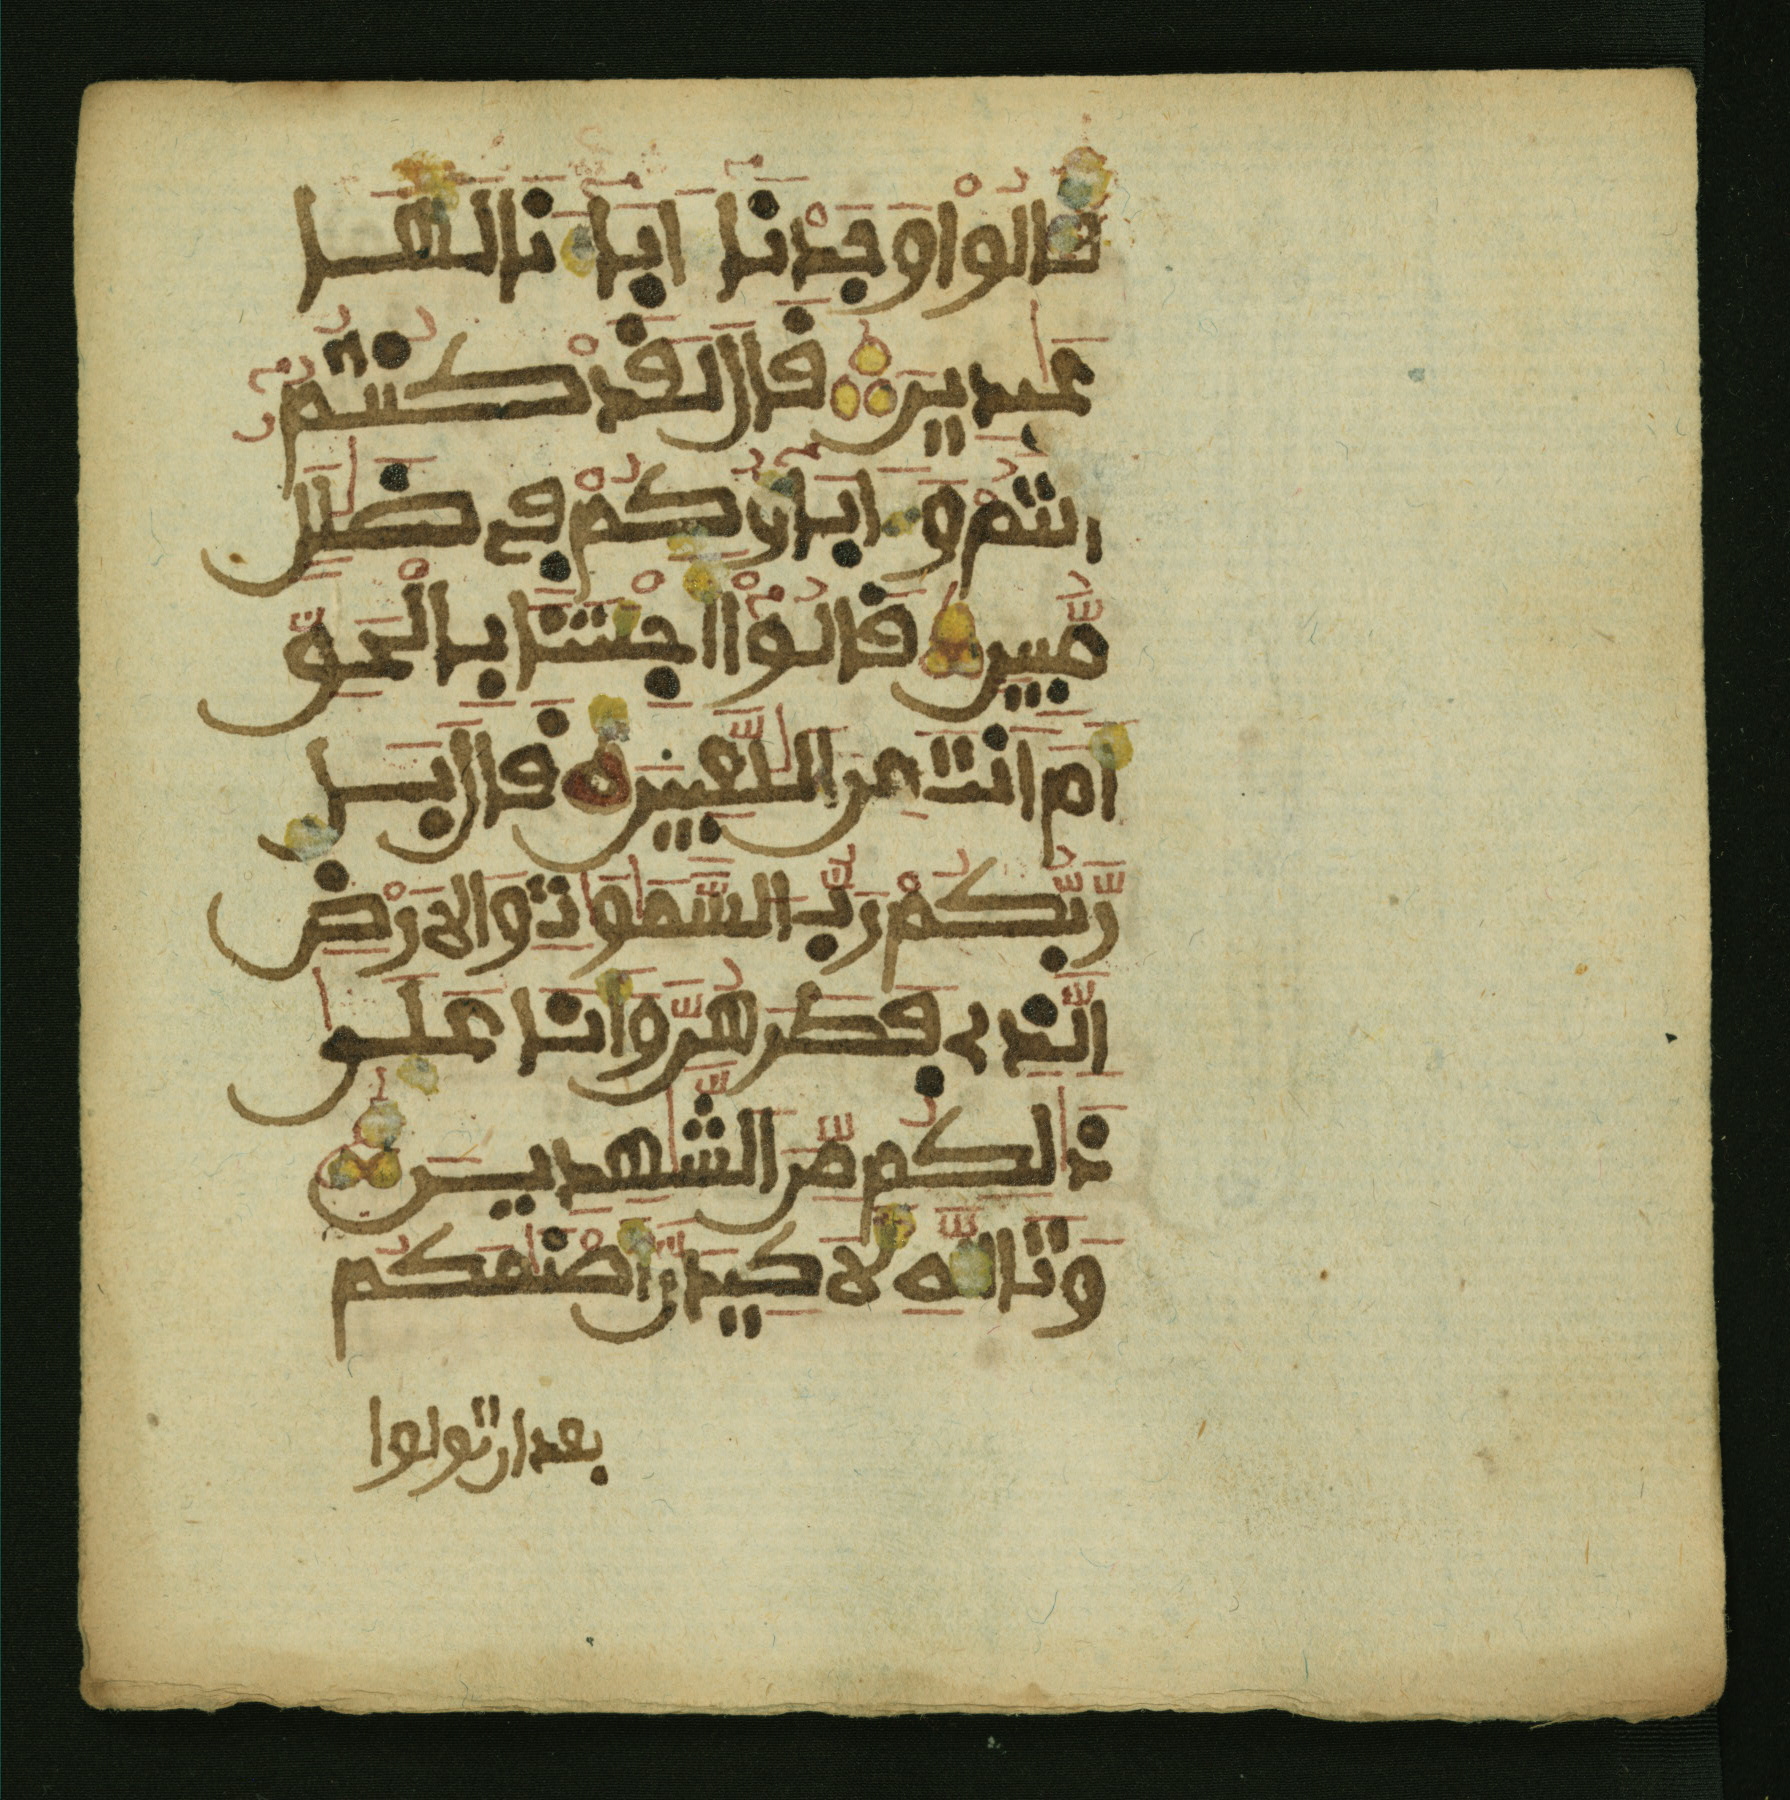 قَالُواْ وَجَدْنَا ءَابَآءَنَا لَهَا
عَٰبِدِينَ قَالَ لَقَدْ كُنتُمُۥٓ
أَنتُمْ وَءَابَآؤُكُمْ فِي ضَلَٰلٖ
مُّبِينٖ قَالُوٓاْ أَجِئْتَنَا بِالْحَقِّ
أَمَ اَنتَ مِنَ اَللَّٰعِبِينَ قَالَ بَل
رَّبُّكُمْ رَبُّ السَّمَٰوَٰتِ وَالَارْضِ
اَلَّذِي فَطَرَهُنَّ وَأَنَا عَلَىٰ
ذَٰلِكُم مِّنَ اَلشَّٰهِدِينَ
وَتَاللَّهِ لَأَكِيدَنَّ أَصْنَٰمَكُم
بعد ان تولوا